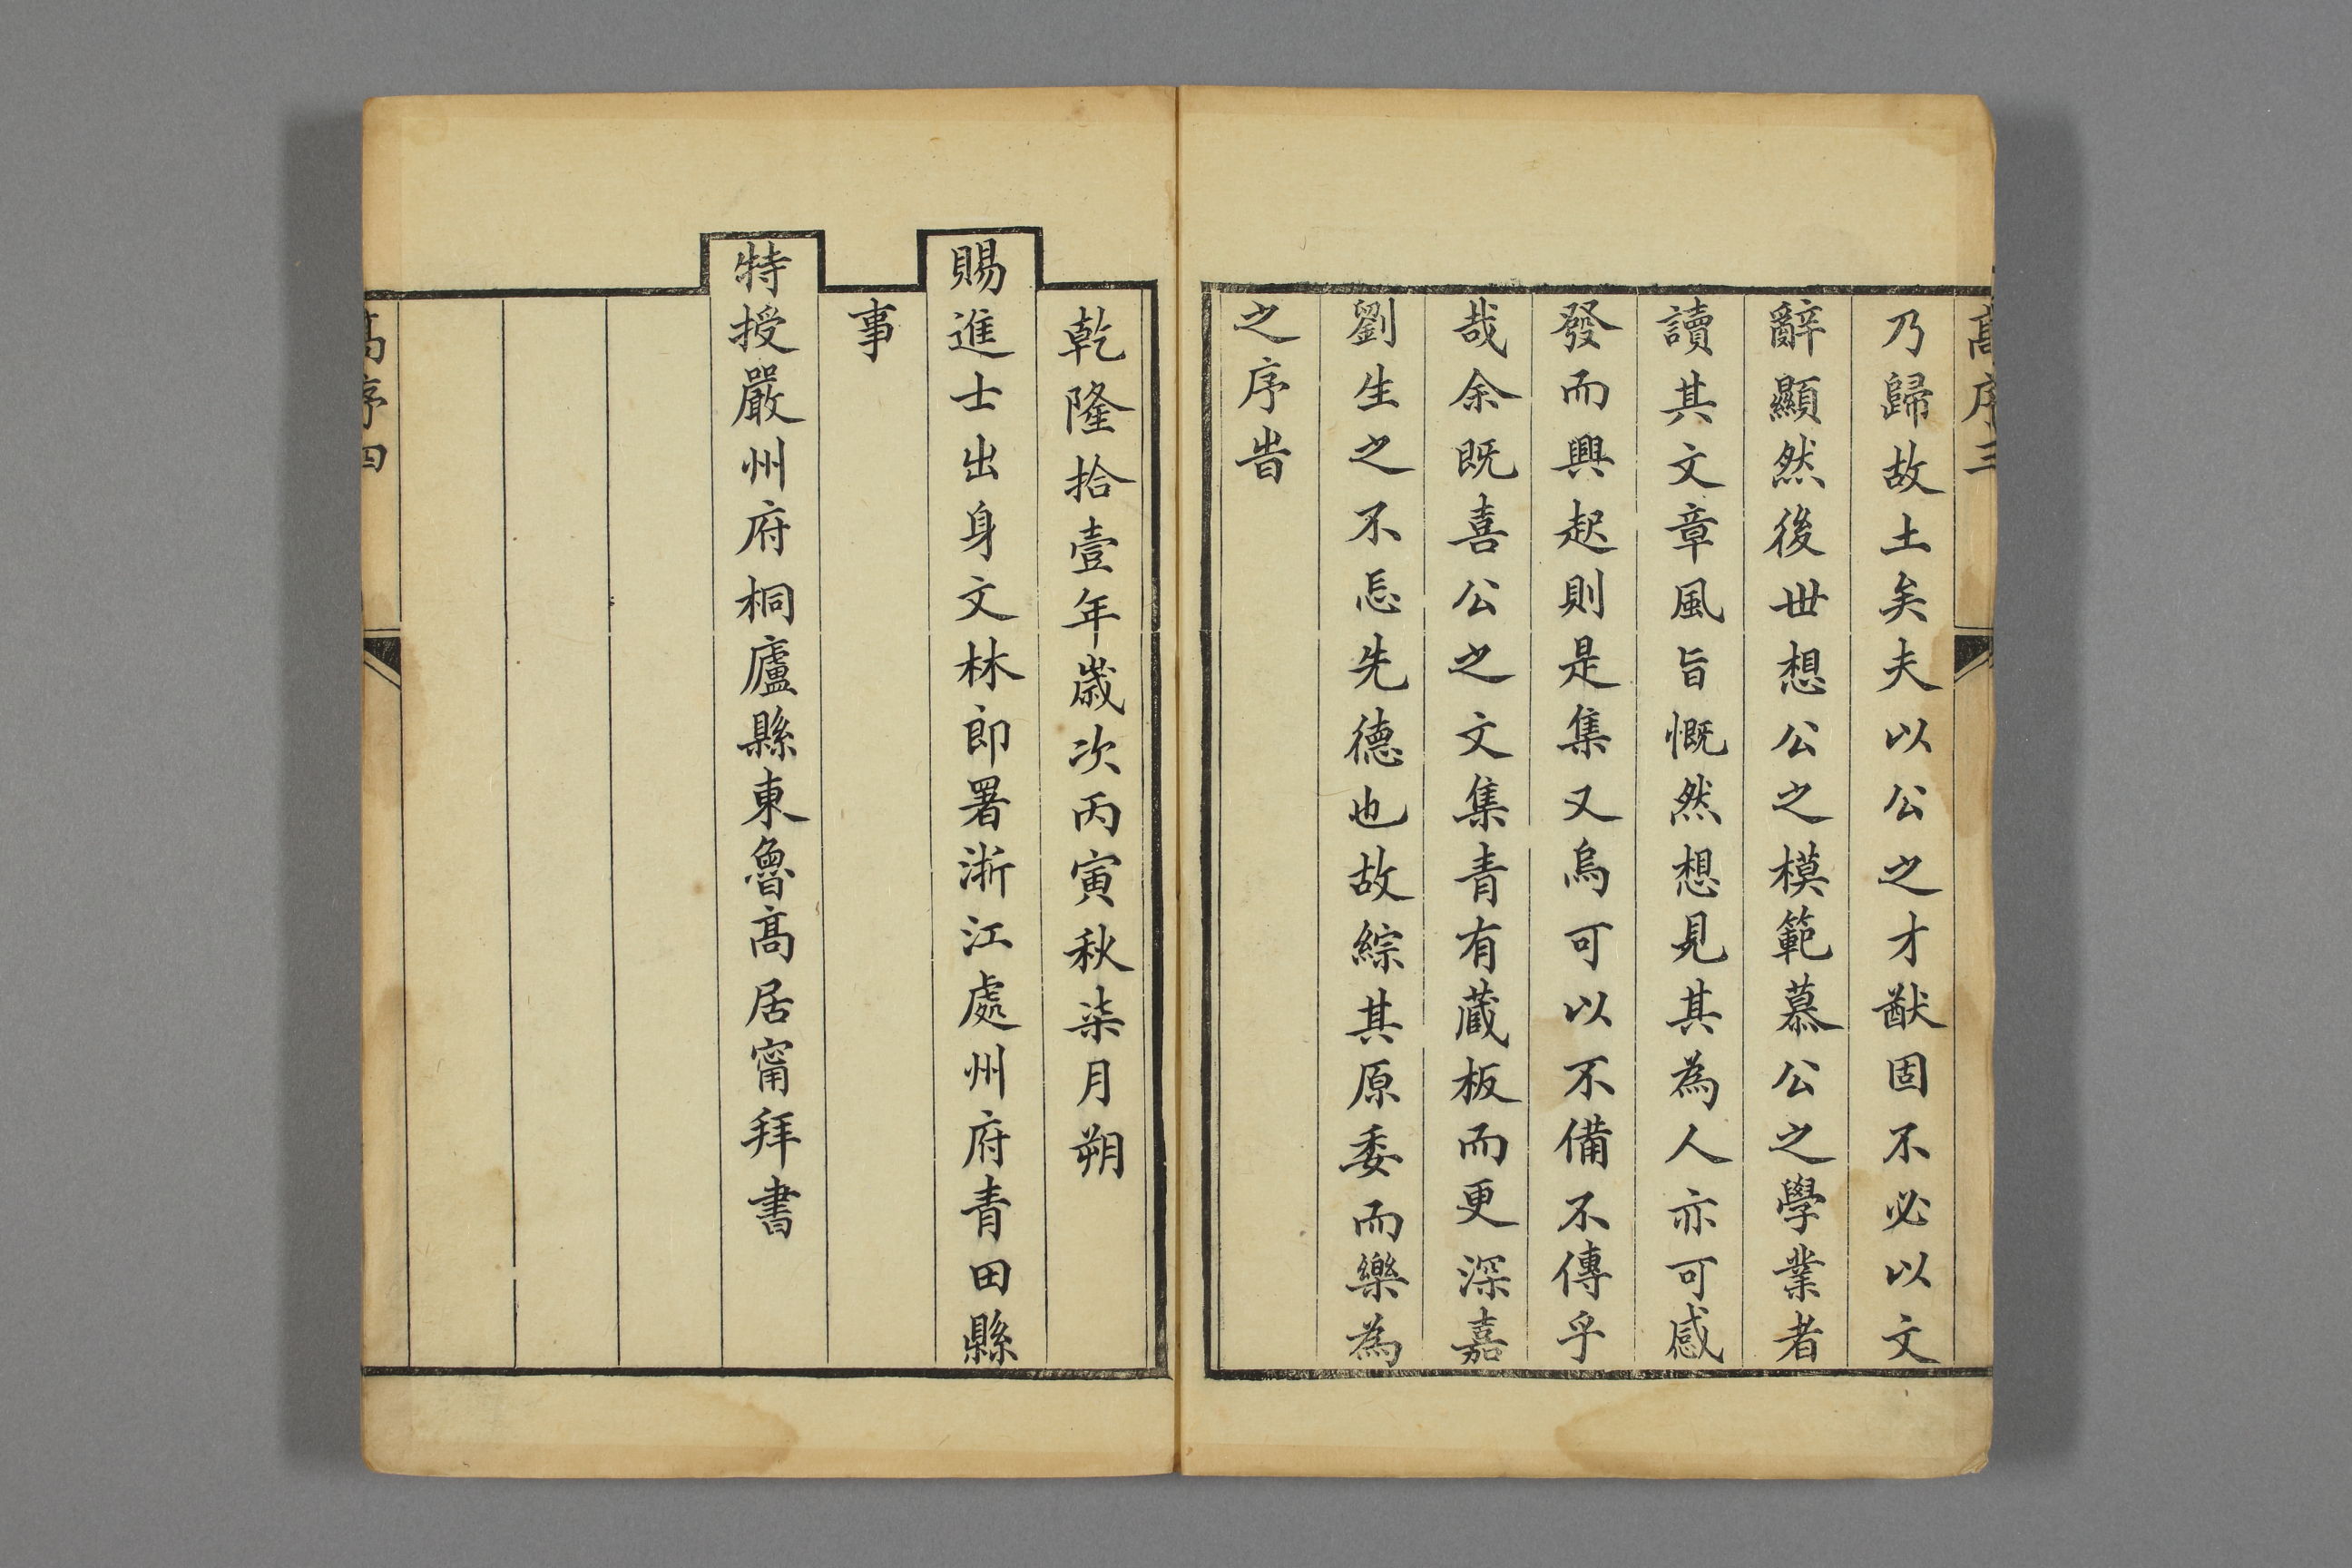 高序三
乃歸故土矣夫以公之才猷固不必以文
辭顯然後世想公之模範慕公之學業者
讀其文章風旨慨然想見其為人亦可感
發而興起則是集又烏可以不備不傳乎
哉余既喜公之文集青有蔵板而更深嘉
劉生之不忘先德也故綜其原委而樂為
之序旹
乾隆拾壹年歲次丙寅秋柒月朔
賜進士出身文林郎署浙江處州府青田縣
事
特授嚴州府桐廬縣東魯高居甯拜書
高序四